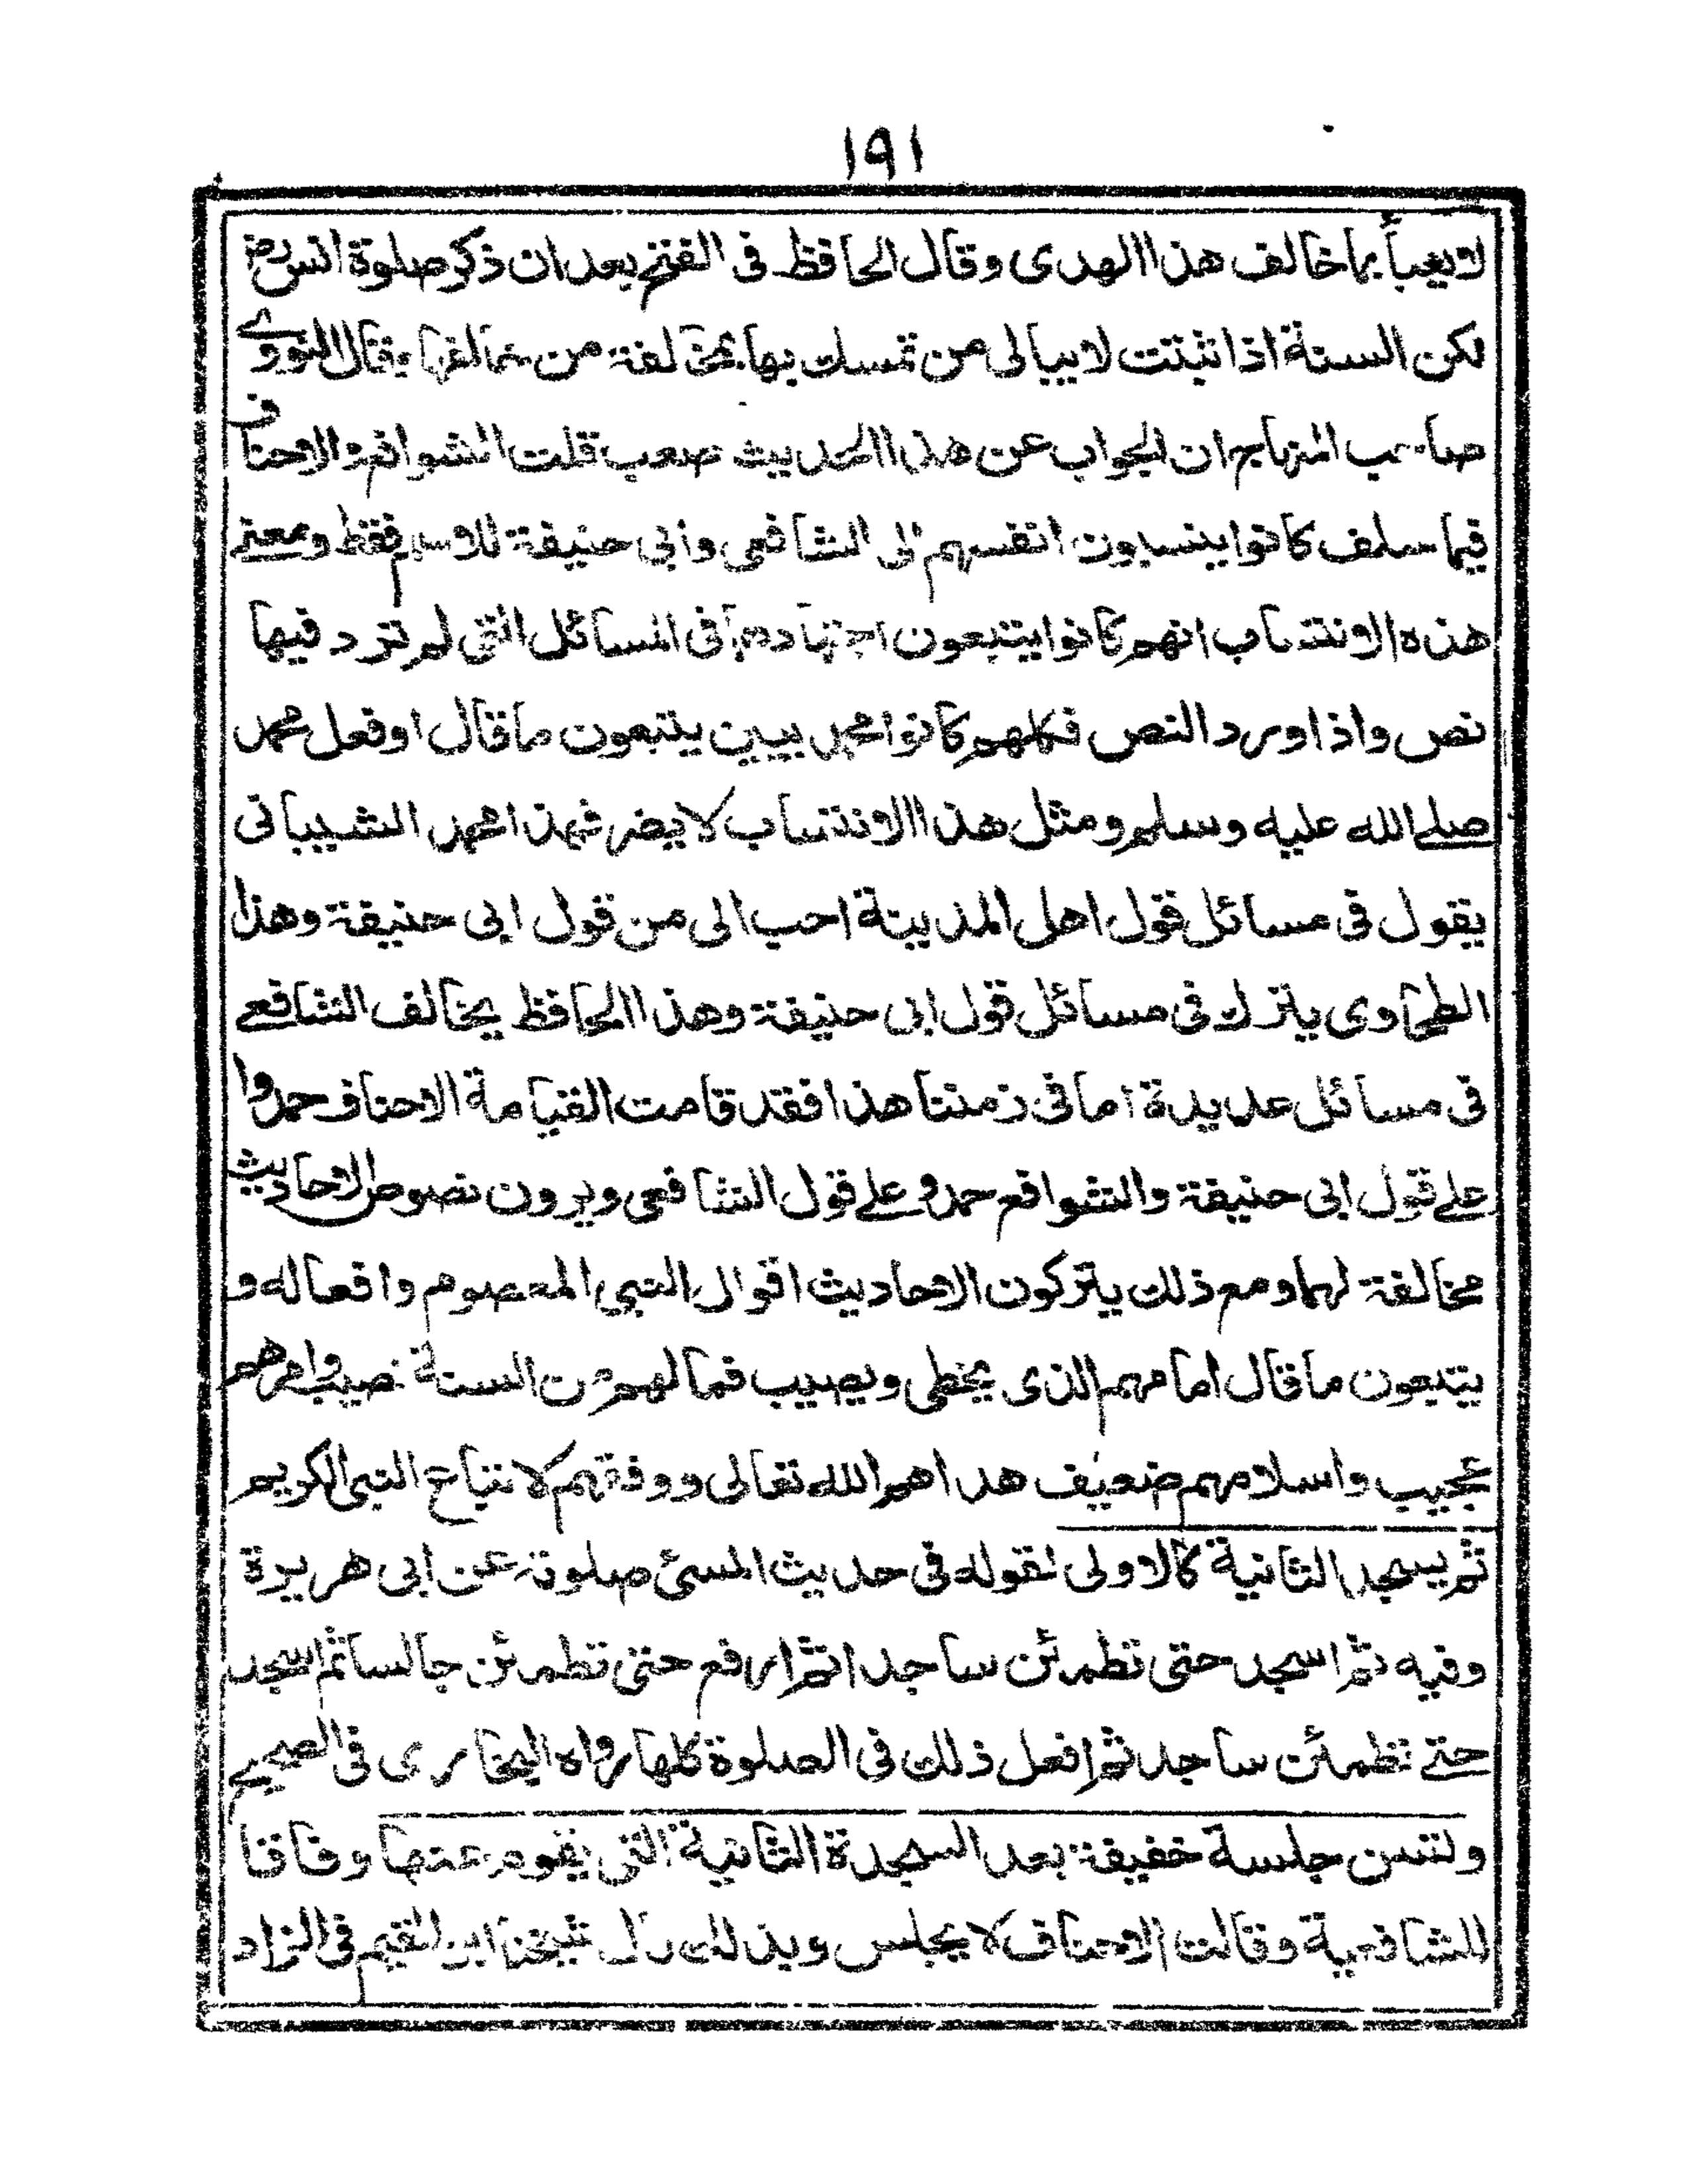 ١٩١
لا يعبأ بما خالف هذا الهدى وقال الحافظ فى الفتح بعد ان ذكر صلوة انس رض
لكن السنة اذا ثبتت لا يبالى من تمسك بها بمخالفة من خالفها وقال النووے
صاحب المنهاج ان الجواب عن هذا الحديث صعب قلت الشوافع والاحناف
فيما سلف كانوا ينسبون انفسهم الى الشافعى وأبى حنيفة للاسم فقط ومعنے
هذه الانتساب انهم كانوا يتبعون اجتهادهما فى المسائل التى لم ترد فيها
نص واذا ورد النص فكلهم كانوا محمديين يتبعون ما قال او فعل محمد
صلے الله عليه وسلم ومثل هذا الانتساب لا يضر فهذا محمد الشيبانى
يقول فى مسائل قول اهل المدينة احب الى من قول ابى حنيفة وهذا
الطحاوى يترك فى مسائل قول ابى حنيفة وهذا الحافظ يخالف الشافعے
فى مسائل عديدة اما فى زمننا هذا فقد قامت القيامة الاحناف جمدوا
علے قول ابى حنيفة والشوافع جمدو علے قول الشافعى ويرون نصوص الاحاديث
مخالفة لهما ومع ذلك يتركون الاحاديث اقوال النبى المعصوم وافعاله و
يتبعون ما قال امامهم الذى يخطى ويصيب فما لهم من السنة نصيب وامرهم
عجيب واسلامهم ضعيف هداهم الله تعالى ووفقهم لاتباع النبى الكريم
ثم يسجد الثانية كالاولى لقوله فى حديث المسئ صلوته عن ابى هريرة
وفيه ثم اسجد حتى تطمئن ساجدا ثم ارفع حتى تطمئن جالسا ثم اسجد
حتے تطمئن ساجد ثم افعل ذلك فى الصلوة كلها رواه البخارى فى الصحيح
ولتسن جلسة خفيفة بعد السجدة الثانية التى يقوم عنها وفاقا
للشافعية وقالت الاحناف لا يجلس وبذلك شيخنا ابن القيم فى الزاد